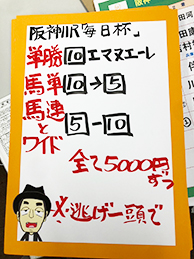 阪神11R「毎日杯」
単勝 10 エマヌエーレ
馬単 10→5
馬連とワイド 5-10
全て5000円ずつ
※逃げ一頭で